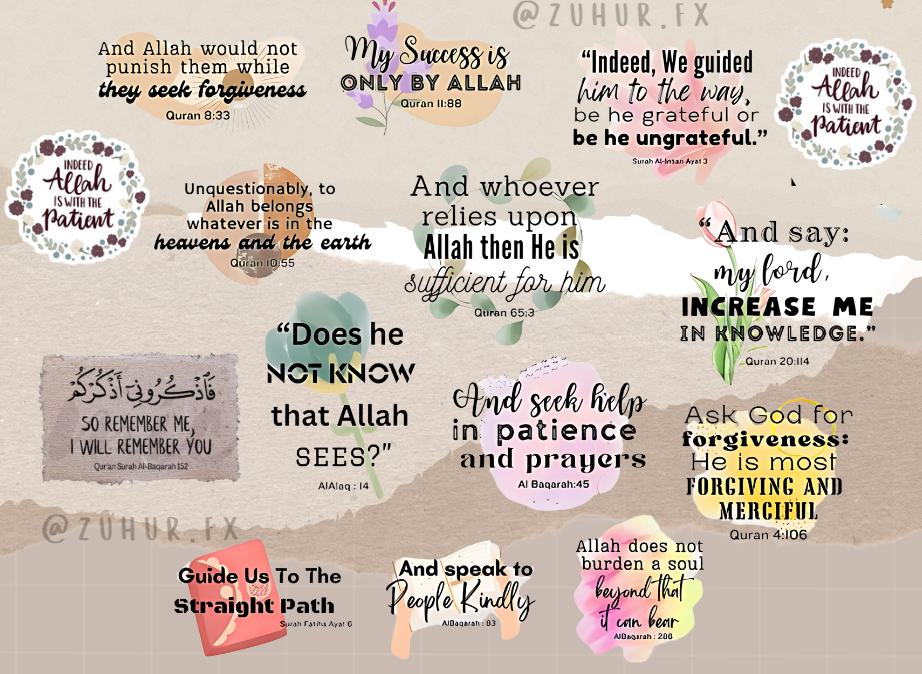 @ZUHUR.FX
And Allah would not
punish them while
they seek forgiveness
Quran 8:33
My Success is
ONLY BY ALLAH
Quran 11:88
“Indeed, We guided
him to the way,
be he grateful or
be he ungrateful.”
Surah Al-Insan Ayat 3
INDEED
Allah
IS WITH THE
Patient
INDEED
Allah
IS WITH THE
Patient
Unquestionably, to
Allah belongs
whatever is in the
heavens and the earth
Quran 10:55
And whoever
relies upon
Allah then He is
sufficient for him
Quran 65:3
“And say:
my lord,
INCREASE ME
IN KNOWLEDGE.”
Quran 20:114
فَاذْكُرُونِي أَذْكُرْكُمْ
SO REMEMBER ME,
I WILL REMEMBER YOU
Quran Surah Al-Baqarah 152
“Does he
NOT KNOW
that Allah
SEES?”
AlAlaq : 14
And seek help
in patience
and prayers
Al Baqarah:45
Ask God for
forgiveness:
He is most
FORGIVING AND
MERCIFUL
Quran 4:106
@ZUHUR.FX
Guide Us To The
Straight Path
Surah Fatiha Ayat 6
And speak to
People Kindly
AlBaqarah : 83
Allah does not
burden a soul
beyond that
it can bear
AlBaqarah : 286